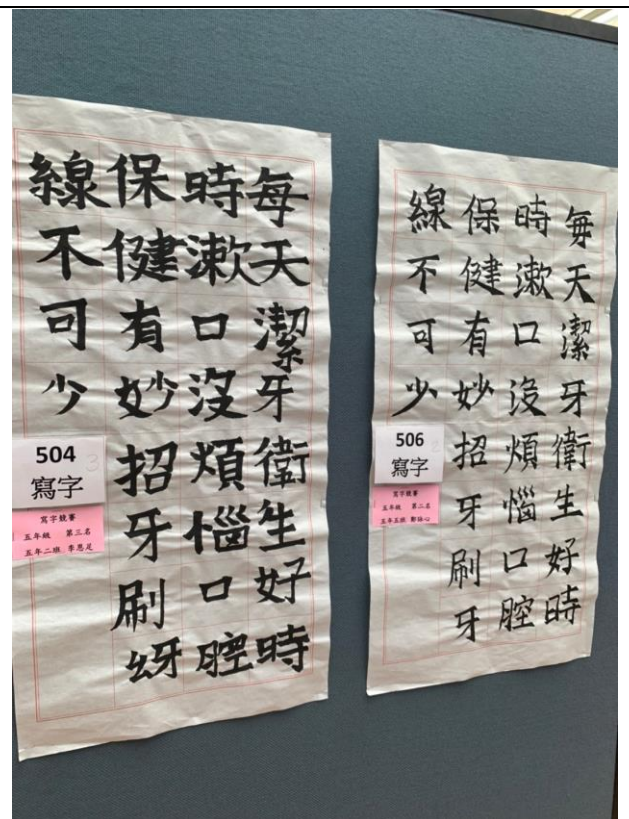 每天潔牙衛生好時
時漱口沒煩惱口腔
保健有妙招牙刷牙
線不可少
504 3
寫字
寫字競賽
五年級 第三名
五年二班
每天潔牙衛生好時
時漱口沒煩惱口腔
保健有妙招牙刷牙
線不可少
506 2
寫字
寫字競賽
五年級 第二名
五年五班